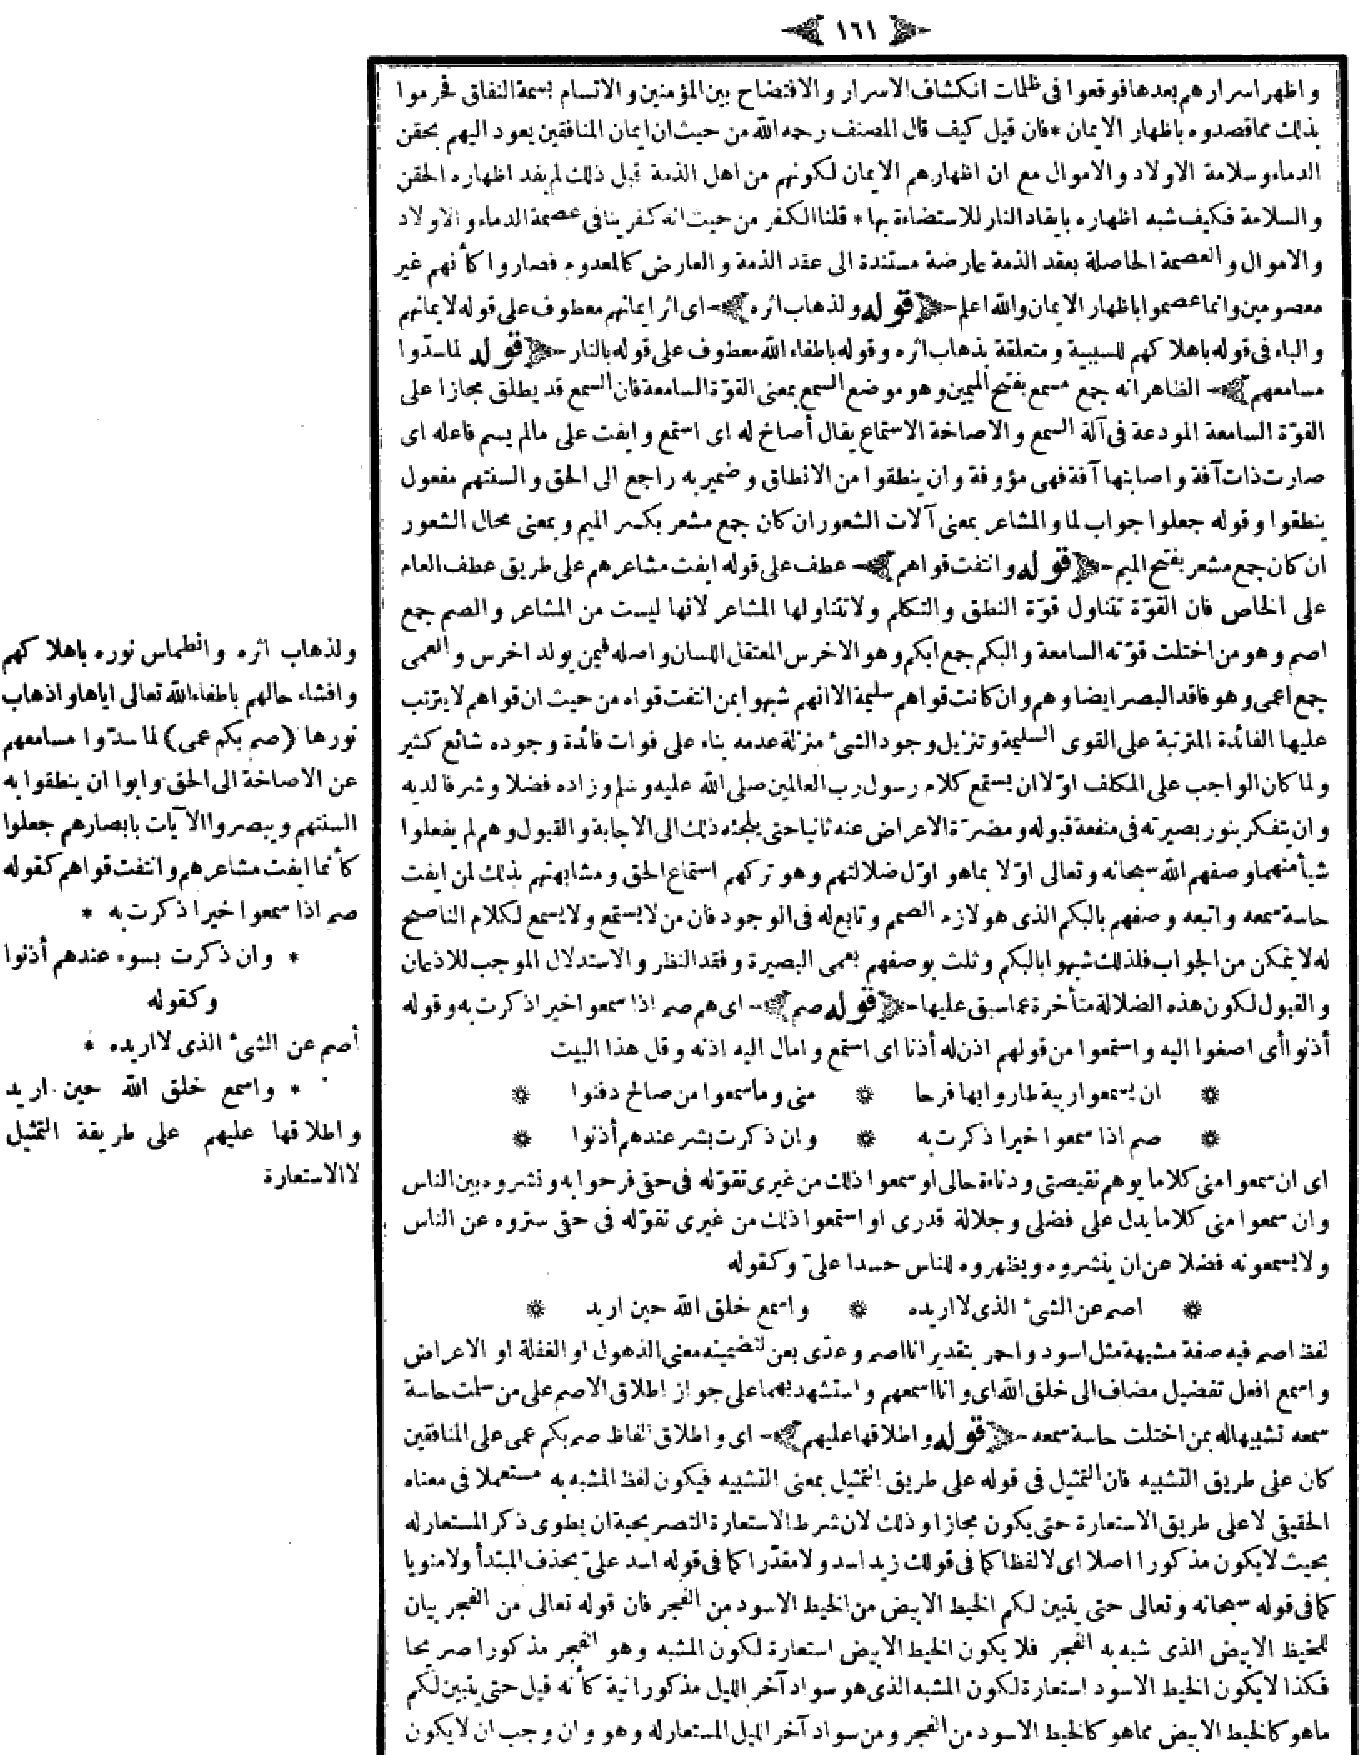 ١٦١
واظهر اسرارهم بعدها فوقعوا فى ظلمات انكشاف الاسرار والافتضاح بين المؤمنين والاتسام بسمة النفاق فحرموا
بذلك مما قصدوه باظهار الايمان * فان قيل كيف قال المصنف رحمه الله من حيث ان ايمان المنافقين يعود اليهم بحقن
الدماء وسلامة الاولاد والاموال مع ان اظهارهم الايمان لكونهم من اهل الذمة قبل ذلك لم يفد اظهاره الحقن
والسلامة فكيف شبه اظهاره بايقاد النار للاستضاءة بها * قلنا الكفر من حيث انه كفر ينافى عصمة الدماء والاولاد
والاموال والعصمة الحاصلة بعقد الذمة عارضة مستندة الى عقد الذمة والعارض كالمعدوم فصاروا كأنهم غير
معصومين وانما عصموا باظهار الايمان والله اعلم ﴿ قوله ولذهاب اثره ﴾ اى اثر ايمانهم معطوف على قوله لايمانهم
والباء فى قوله باهلاكهم للسببية ومتعلقة بذهاب اثره وقوله باطفاء الله معطوف على قوله بالنار ﴿ قوله لما سدّوا
مسامعهم ﴾ الظاهر انه جمع مسمع بفتح الميمين وهو موضع السمع بمعنى القوّة السامعة فان السمع قد يطلق مجازا على
القوّة السامعة المودعة فى آلة السمع والاصاخة الاستماع يقال أصاخ له اى استمع وايفت على مالم يسم فاعله اى
صارت ذات آفة واصابتها آفة فهى مؤوفة وان ينطقوا من الانطاق وضمير به راجع الى الحق والسنتهم مفعول
ينطقوا وقوله جعلوا جواب لما والمشاعر بمعنى آلات الشعور ان كان جمع مشعر بكسر الميم وبمعنى محال الشعور
ان كان جمع مشعر بفتح الميم ﴿ قوله وانتفت قواهم ﴾ عطف على قوله ايفت مشاعرهم على طريق عطف العام
على الخاص فان القوّة تتناول قوّة النطق والتكلم ولا تتناولها المشاعر لانها ليست من المشاعر والصم جمع
اصم وهو من اختلت قوّته السامعة والبكم جمع ابكم وهو الاخرس المعتقل اللسان واصله فيمن يولد اخرس والعمى
جمع اعمى وهو فاقد البصر ايضا وهم وان كانت قواهم سليمة الا انهم شبهوا بمن انتفت قواه من حيث ان قواهم لا يترتب
عليها الفائدة المترتبة على القوى السليمة وتنزيل وجود الشئ منزلة عدمه بناء على فوات فائدة وجوده شائع كثير
ولما كان الواجب على المكلف اوّلا ان يستمع كلام رسول رب العالمين صلى الله عليه وسلم وزاده فضلا وشرفا لديه
وان يتفكر بنور بصيرته فى منفعة قبوله ومضرّة الاعراض عنه ثانيا حتى يلجئه ذلك الى الاجابة والقبول وهم لم يفعلوا
شيأ منهما وصفهم الله سبحانه وتعالى اوّلا بما هو اوّل ضلالتهم وهو تركهم استماع الحق ومشابهتهم بذلك لمن ايفت
حاسة سمعه واتبعه وصفهم بالبكم الذى هو لازم الصمم وتابع له فى الوجود فان من لا يستمع ولا يسمع لكلام الناصح
له لا يتمكن من الجواب فلذلك شبهوا بالبكم وثلث بوصفهم بعمى البصيرة وفقد النظر والاستدلال الموجب للاذعان
والقبول لكون هذه الضلالة متأخرة عما سبق عليها ﴿ قوله صم ﴾ اى هم صم اذا سمعوا خيرا ذكرت به وقوله
أذنوا أى اصغوا اليه واستمعوا من قولهم اذن له أذنا اى استمع وامال اليه اذنه وقل هذا البيت
* ان يسمعوا ريبة طاروا بها فرحا * منى وما سمعوا من صالح دفنوا *
* صم اذا سمعوا خيرا ذكرت به * وان ذكرت بشر عندهم أذنوا *
اى ان سمعوا منى كلاما يوهم نقيصتى ودناءة حالى او سمعوا ذلك من غيرى تقوّله فى حقى فرحوا به ونشروه بين الناس
وان سمعوا منى كلاما يدل على فضلى وجلالة قدرى او استمعوا ذلك من غيرى تقوّله فى حقى ستروه عن الناس
ولا يسمعونه فضلا عن ان ينشروه ويظهروه للناس حسدا علىّ وكقوله
* اصم عن الشئ الذى لا اريده * واسمع خلق الله حين اريد *
لفظ اصم فيه صفة مشبهة مثل اسود واحمر بتقدير انا اصم وعدّى بعن لتضمينه معنى الذهول او الغفلة او الاعراض
واسمع افعل تفضيل مضاف الى خلق الله اى وانا اسمعهم واستشهد بهما على جواز اطلاق الاصم على من سلمت حاسة
سمعه تشبيها له بمن اختلت حاسة سمعه ﴿ قوله واطلاقها عليهم ﴾ اى واطلاق الفاظ صم بكم عمى على المنافقين
كان على طريق التشبيه فان التمثيل فى قوله على طريق التمثيل بمعنى التشبيه فيكون لفظ المشبه به مستعملا فى معناه
الحقيقى لا على طريق الاستعارة حتى يكون مجازا وذلك لان شرط الاستعارة التصريحية ان يطوى ذكر المستعار له
بحيث لا يكون مذكورا اصلا اى لا لفظا كما فى قولك زيد اسد ولا مقدّرا كما فى قوله اسد علىّ بحذف المبتدأ ولا منويا
كما فى قوله سبحانه وتعالى حتى يتبين لكم الخيط الابيض من الخيط الاسود من الفجر فان قوله تعالى من الفجر بيان
للخيط الابيض الذى شبه به الفجر فلا يكون الخيط الابيض استعارة لكون المشبه وهو الفجر مذكورا صريحا
فكذا لا يكون الخيط الاسود استعارة لكون المشبه الذى هو سواد آخر الليل مذكورا نية كأنه قيل حتى يتبين لكم
ماهو كالخيط الابيض مما هو كالخيط الاسود من الفجر ومن سواد آخر الليل المستعار له وهو وان وجب ان لا يكون
ولذهاب اثره وانطماس نوره باهلاكهم
وافشاء حالهم باطفاء الله تعالى اياها واذهاب
نورها (صم بكم عمى) لما سدّوا مسامعهم
عن الاصاخة الى الحق وابوا ان ينطقوا به
السنتهم ويبصروا الآيات بابصارهم جعلوا
كأنما ايفت مشاعرهم وانتفت قواهم كقوله
صم اذا سمعوا خيرا ذكرت به *
* وان ذكرت بسوء عندهم أذنوا
وكقوله
أصم عن الشئ الذى لا اريده *
* واسمع خلق الله حين اريد
واطلاقها عليهم على طريقة التمثيل
لا الاستعارة